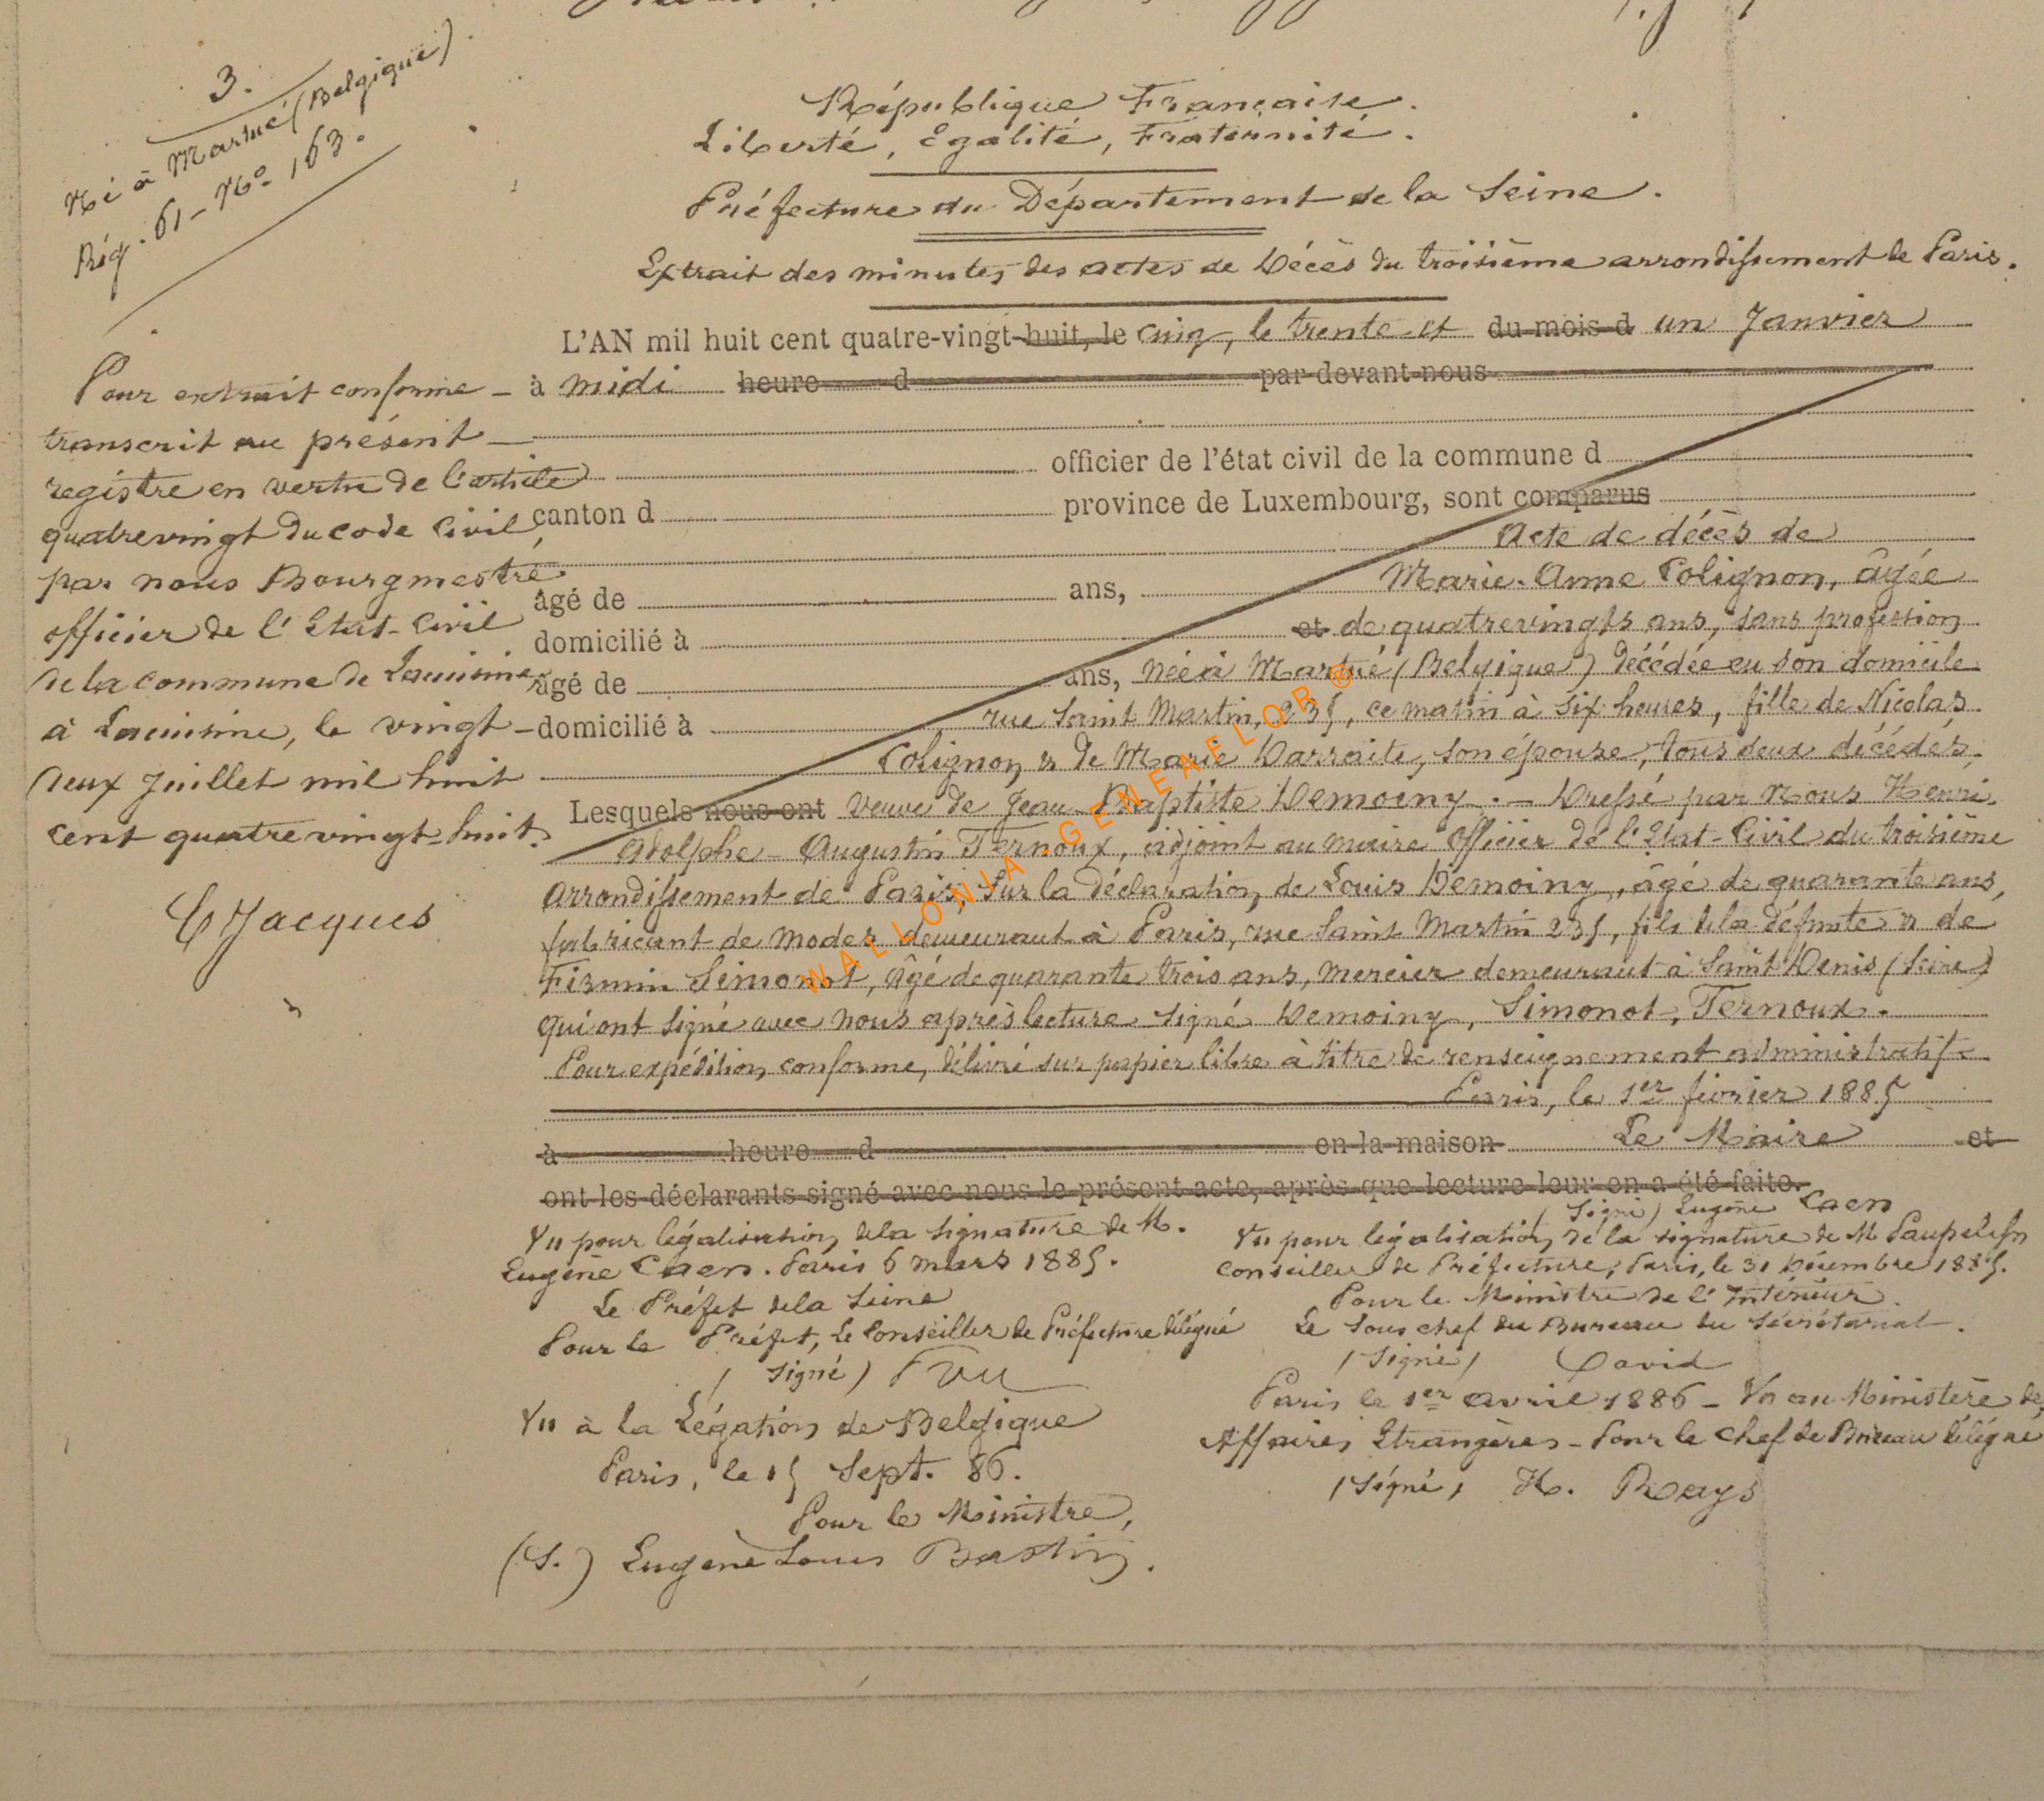 3.
Né à Martué (Belgique).
Rég. 61 - No. 163.
République Française.
Liberté, Egalité, Fraternité.
Préfecture du Département de la Seine.
Extrait des minutes des actes de Décès du troisième arrondissement de Paris.
L'AN mil huit cent quatre-vingt-huit, le cinq, le trente et du mois d un Janvier
à midi heure d par devant nous
officier de l'état civil de la commune d
canton d province de Luxembourg, sont comparus
Acte de décès de
âgé de ans, Marie-Anne Colignon, âgée
domicilié à et de quatrevingts ans, sans profession
âgé de ans, née à Martué (Belgique) décédée en son domicile
domicilié à rue Saint Martin, 235, ce matin à six heures, fille de Nicolas
Colignon & de Marie Warraite, son épouse, tous deux décédés,
Lesquels nous ont veuve de Jean-Baptiste Demoiny. - Dressé par Nous Henri
Adolphe-Augustin Fernoux, adjoint au maire Officier de l'Etat-Civil du troisième
arrondissement de Paris, sur la déclaration de Louis Demoiny, âgé de quarante ans,
fabricant de modes demeurant à Paris, rue Saint Martin 235, fils de la défunte & de
Firmin Simonot, âgé de quarante trois ans, mercier demeurant à Saint Denis (Seine)
qui ont signé avec nous après lecture. signé Demoiny, Simonot, Fernoux.
Pour expédition conforme, délivré sur papier libre à titre de renseignement administratif
Paris, le 1er février 1885
à heure d en la maison Le Maire et
ont les déclarants signé avec nous le présent acte, après que lecture leur en a été faite.
(Signé) Eugène Caen
Vu pour légalisation de la signature de M.
Eugène Caen. Paris 6 mars 1885.
Le Préfet de la Seine
Pour le Préfet, Le Conseiller de Préfecture délégué
(signé)
Vu à la Légation de Belgique
Paris, le 15 Sept. 86.
Pour le Ministre,
(S.) Eugène Louis Bastin.
Vu pour légalisation de la signature de M
Conseiller de Préfecture, Paris, le 31 Décembre 1885.
Pour le Ministre de l'Intérieur
Le Sous chef du Bureau du Secrétariat.
(Signé) David
Paris le 1er avril 1886 - Vu au Ministère des
Affaires Etrangères - Pour le Chef de Bureau délégué
(Signé, H. Rays
Pour extrait conforme -
transcrit au présent -
registre en vertu de l'article
quatrevingt du code Civil,
par nous Bourgmestre
officier de l'Etat-Civil
de la commune de Lacuisine
à Lacuisine, le vingt-
deux Juillet mil huit
cent quatre vingt-huit.
C Jacques
WALLONIA.GENEAFELOR®